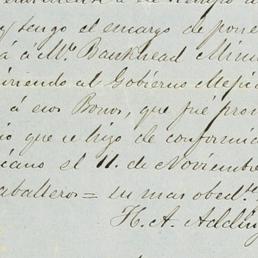 y tengo el encargo de pone
á Mr. Bankhead Minis
iriendo al Gobierno Mejic
á esos Bonos, que fue pro
io que se hizo de conformid
icano el 11. de Noviembre
aballeros = su mas obedte.
H. A. Adding